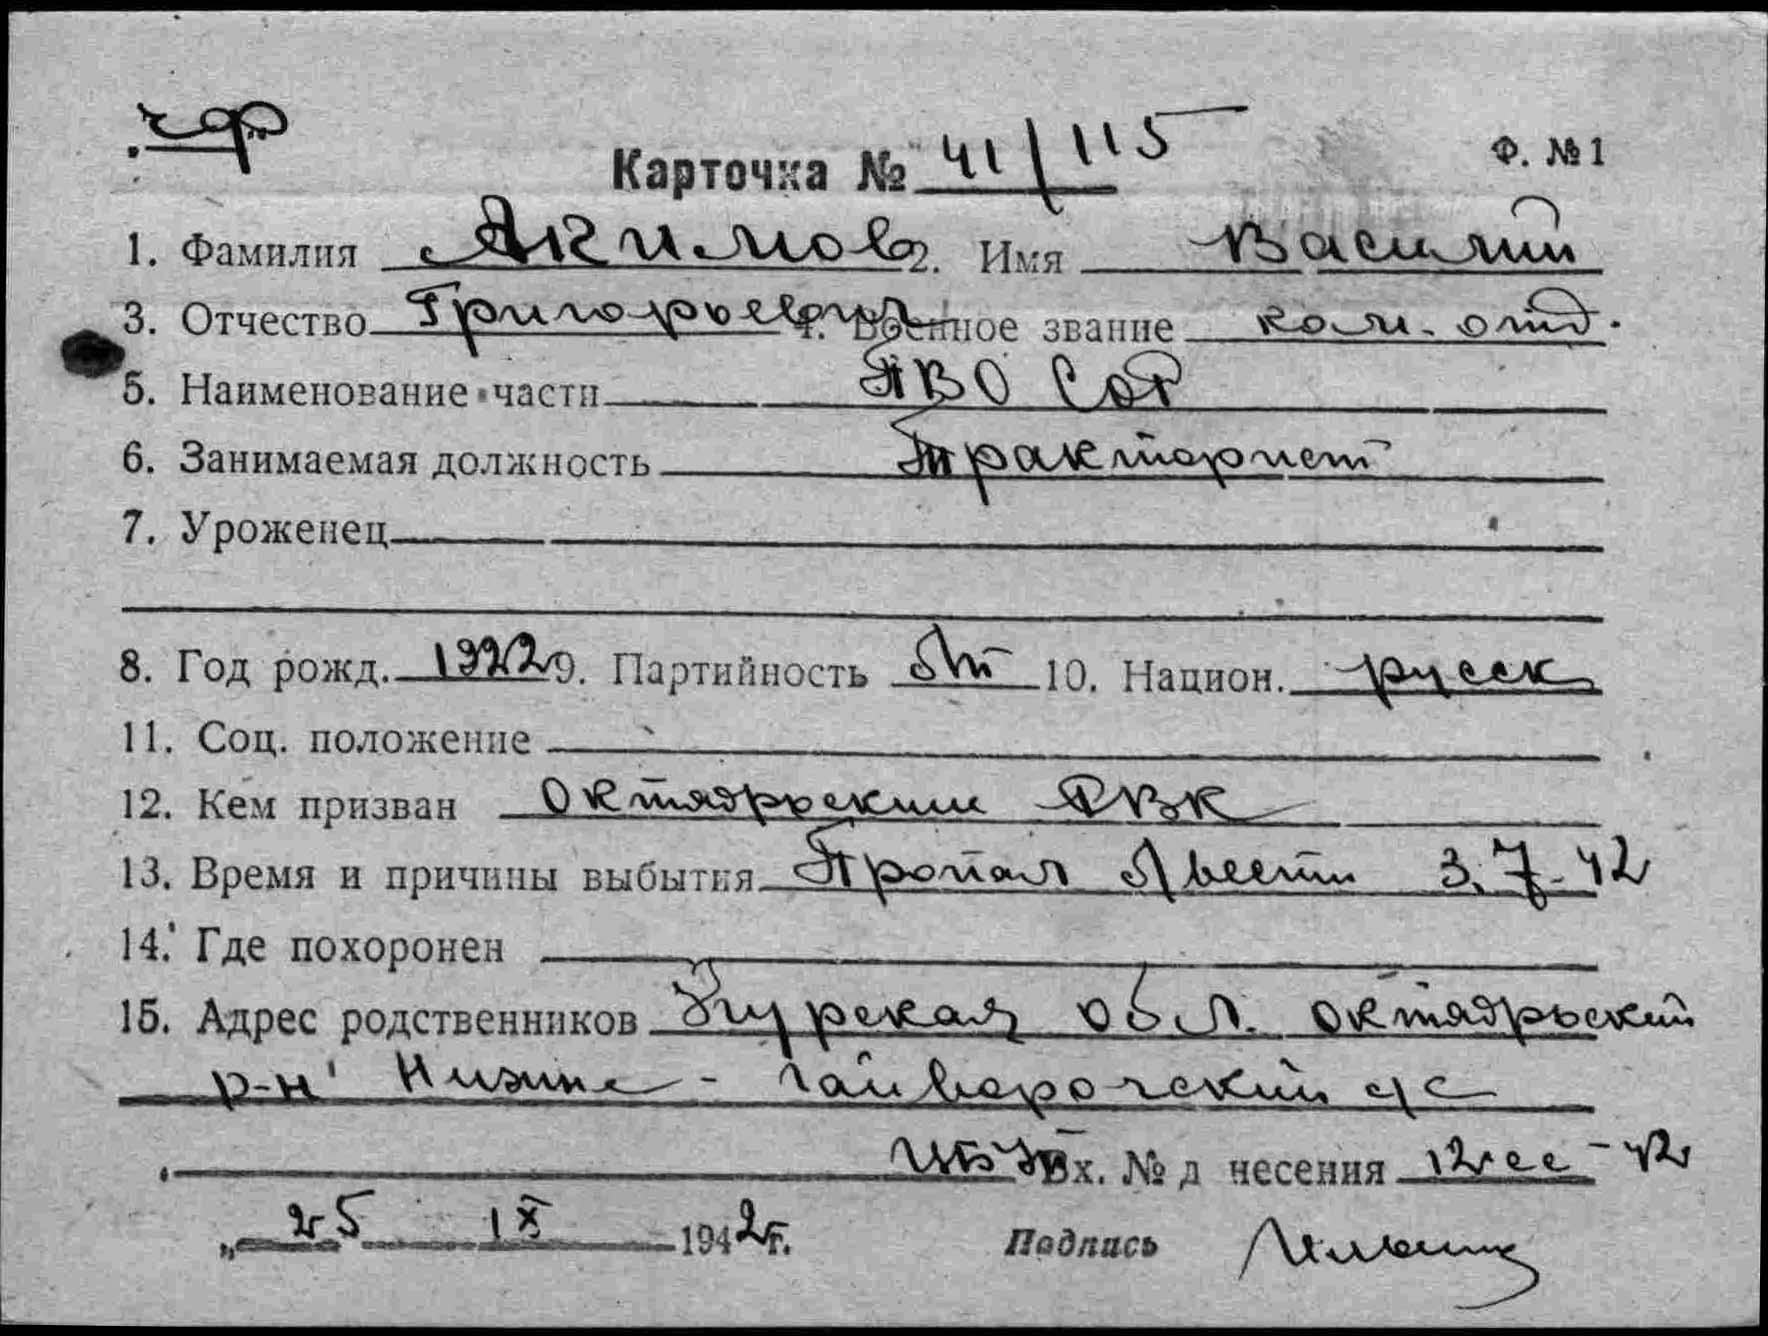 Карточка № 41/115 Ф. № 1
1. Фамилия Акимов 2. Имя Василий
3. Отчество Григорьевич 4. Военное звание ком. отд.
5. Наименование части ПВО СОР
6. Занимаемая должность Тракторист
7. Уроженец
8. Год рожд. 1922 9. Партийность б/п 10. Национ. русск
11. Соц. положение
12. Кем призван Октябрьским РВК
13. Время и причины выбытия Пропал б/вести 3.7-42
14. Где похоронен
15. Адрес родственников Курская обл. Октябрьский
р-н Нижне - Гайворонский с/с
Вх. № д несения 12сс - 42
„25 IX 1942г. Подпись